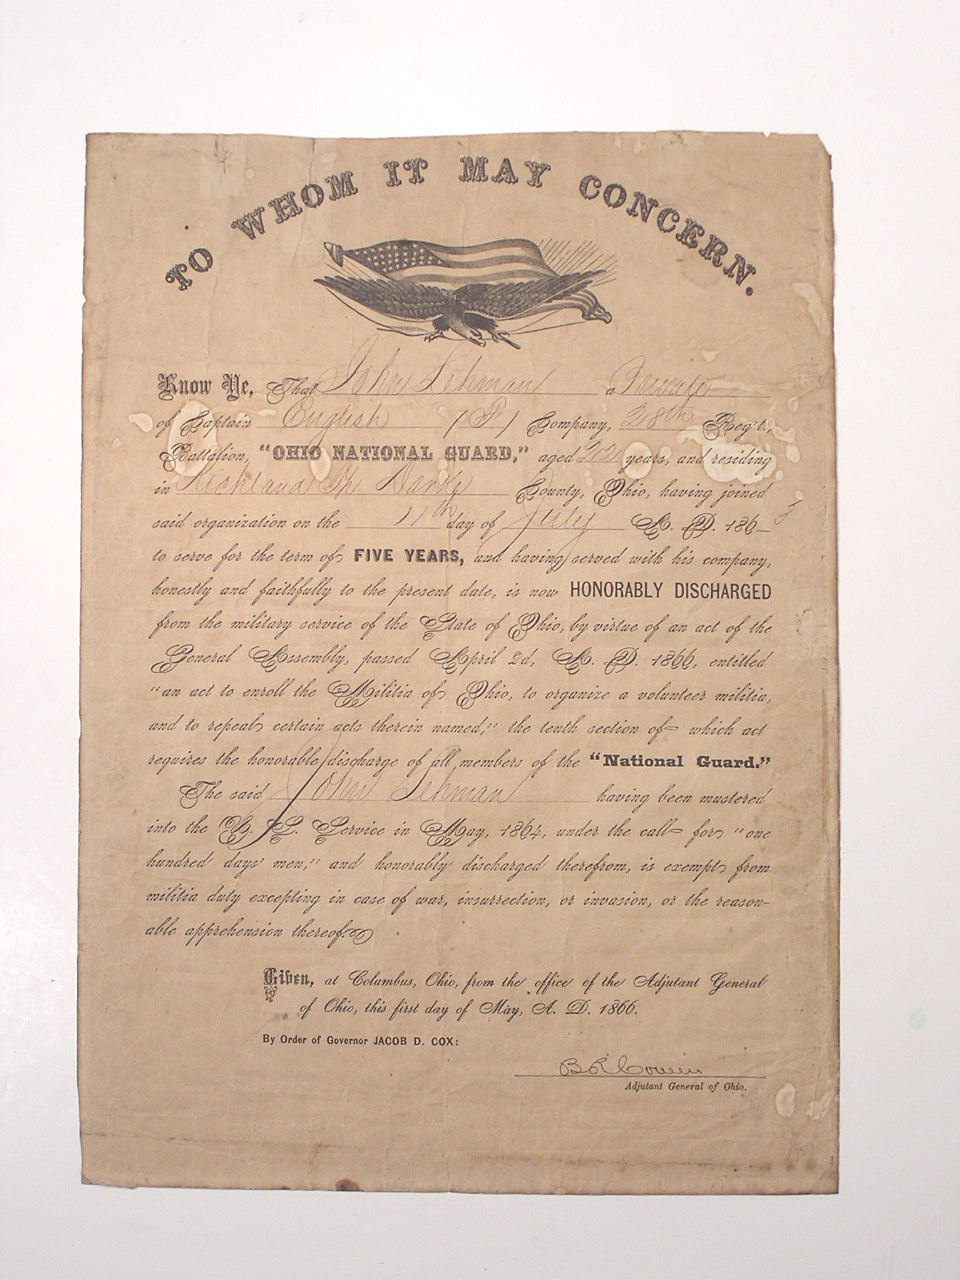 TO WHOM IT MAY CONCERN.
Know Ye, That John Lehman a Private
of Captain English (F) Company, 28th Reg't,
Battalion, "OHIO NATIONAL GUARD," aged 22 years, and residing
in Richland Tp County, Ohio, having joined
said organization on the 11th day of July A. D. 1863
to serve for the term of FIVE YEARS, and having served with his company,
honestly and faithfully to the present date, is now HONORABLY DISCHARGED
from the military service of the State of Ohio, by virtue of an act of the
General Assembly, passed April 2d, A. D. 1866, entitled
"an act to enroll the Militia of Ohio, to organize a volunteer militia,
and to repeal certain acts therein named;" the tenth section of which act
requires the honorable discharge of all members of the "National Guard."
The said John Lehman having been mustered
into the U. S. Service in May, 1864, under the call for "one
hundred days' men," and honorably discharged therefrom, is exempt from
militia duty excepting in case of war, insurrection, or invasion, or the reason-
able apprehension thereof.
Given, at Columbus, Ohio, from the office of the Adjutant General
of Ohio, this first day of May, A. D. 1866.
By Order of Governor JACOB D. COX:
B R Cowen
Adjutant General of Ohio.